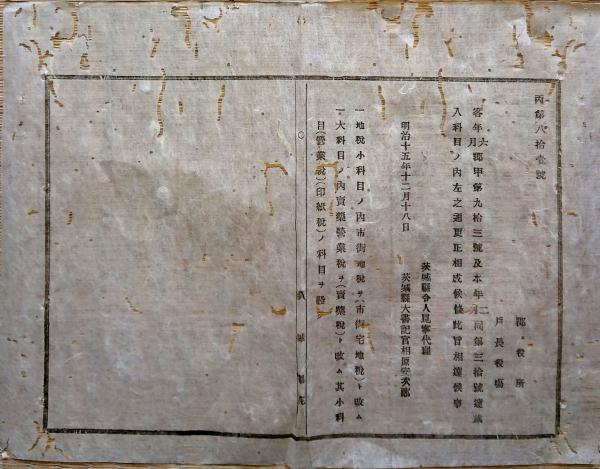 丙第八拾壹號
郡役所
戶長役場
客年六月郡甲第九拾三號及本年二月同第三拾號達歲
入科目ノ內左之通更正相成候條此旨相達候事
茨城縣令人見寧代理
明治十五年十二月十八日 茨城縣大書記官相原安次郎
一地稅小科目ノ內市街地稅ヲ(市街宅地稅)ト改ム
一大科目ノ內賣藥營業稅ヲ(賣藥稅)ト改ム其小科
目(營業稅)(印紙稅)ノ科目ヲ設
茨城縣